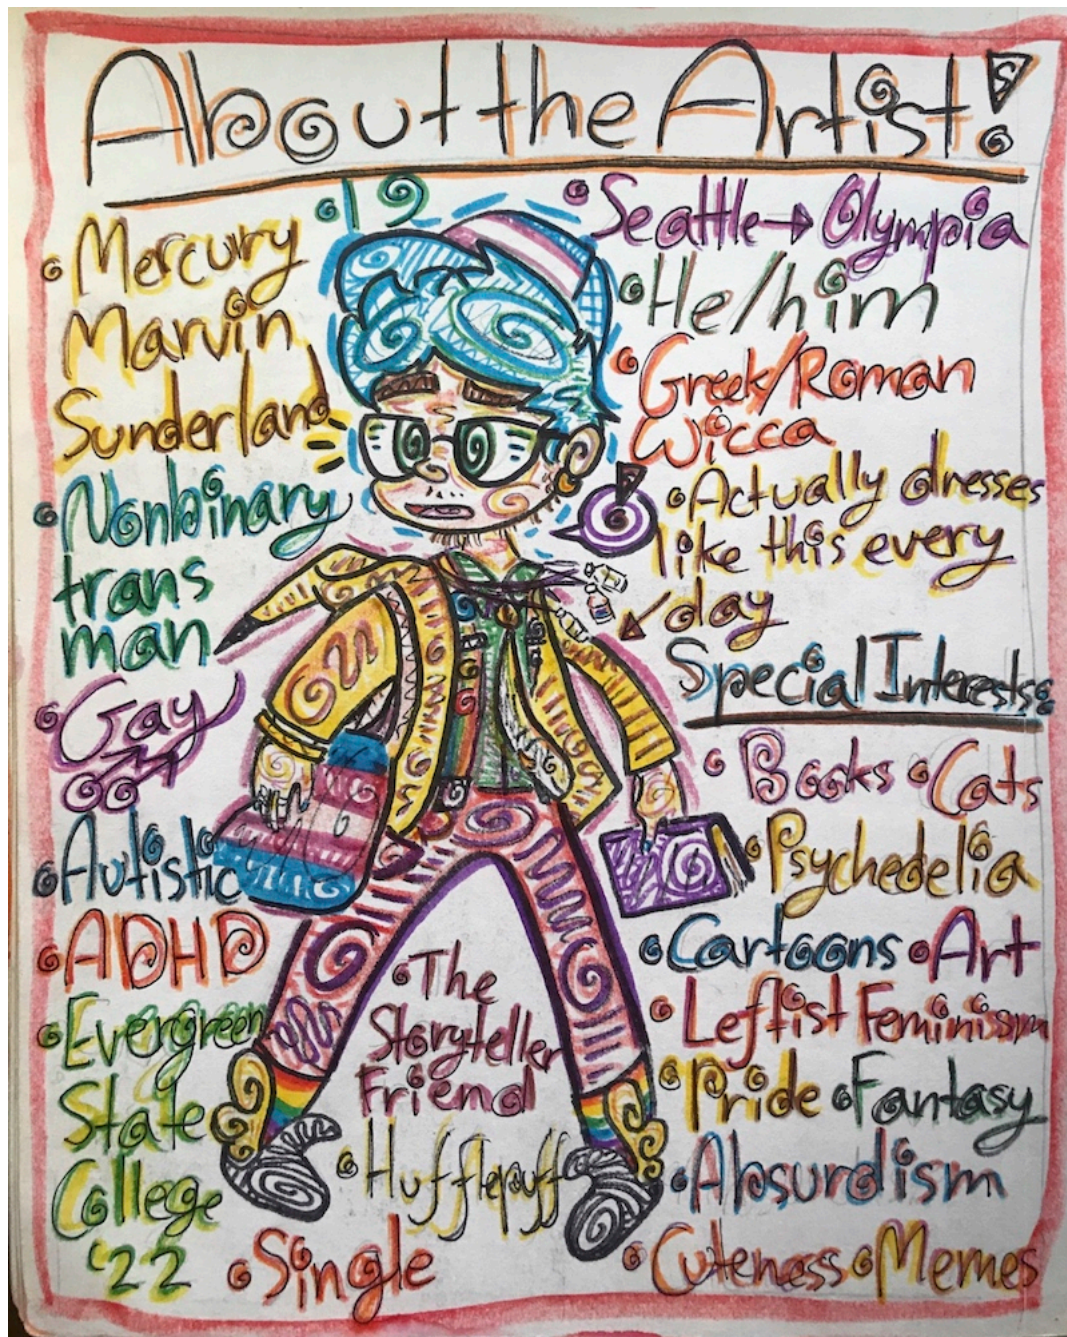 About the Artist!
• 19
• Mercury
Marvin
Sunderland
• Nonbinary
trans
man
• Gay
• Autistic
• ADHD
• Evergreen
State
College
'22
• The
Storyteller
Friend
• Hufflepuff
• Single
• Seattle → Olympia
• He/him
• Greek/Roman
Wicca
• Actually dresses
like this every
day
Special Interests:
• Books • Cats
• Psychedelia
• Cartoons • Art
• Leftist Feminism
• Pride • Fantasy
• Absurdism
• Cuteness • Memes